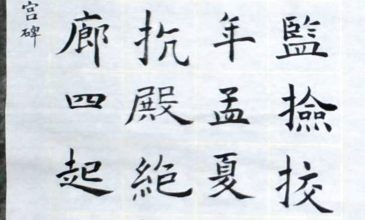 監撿挍
年孟夏
抗殿絕
廊四起
宮碑